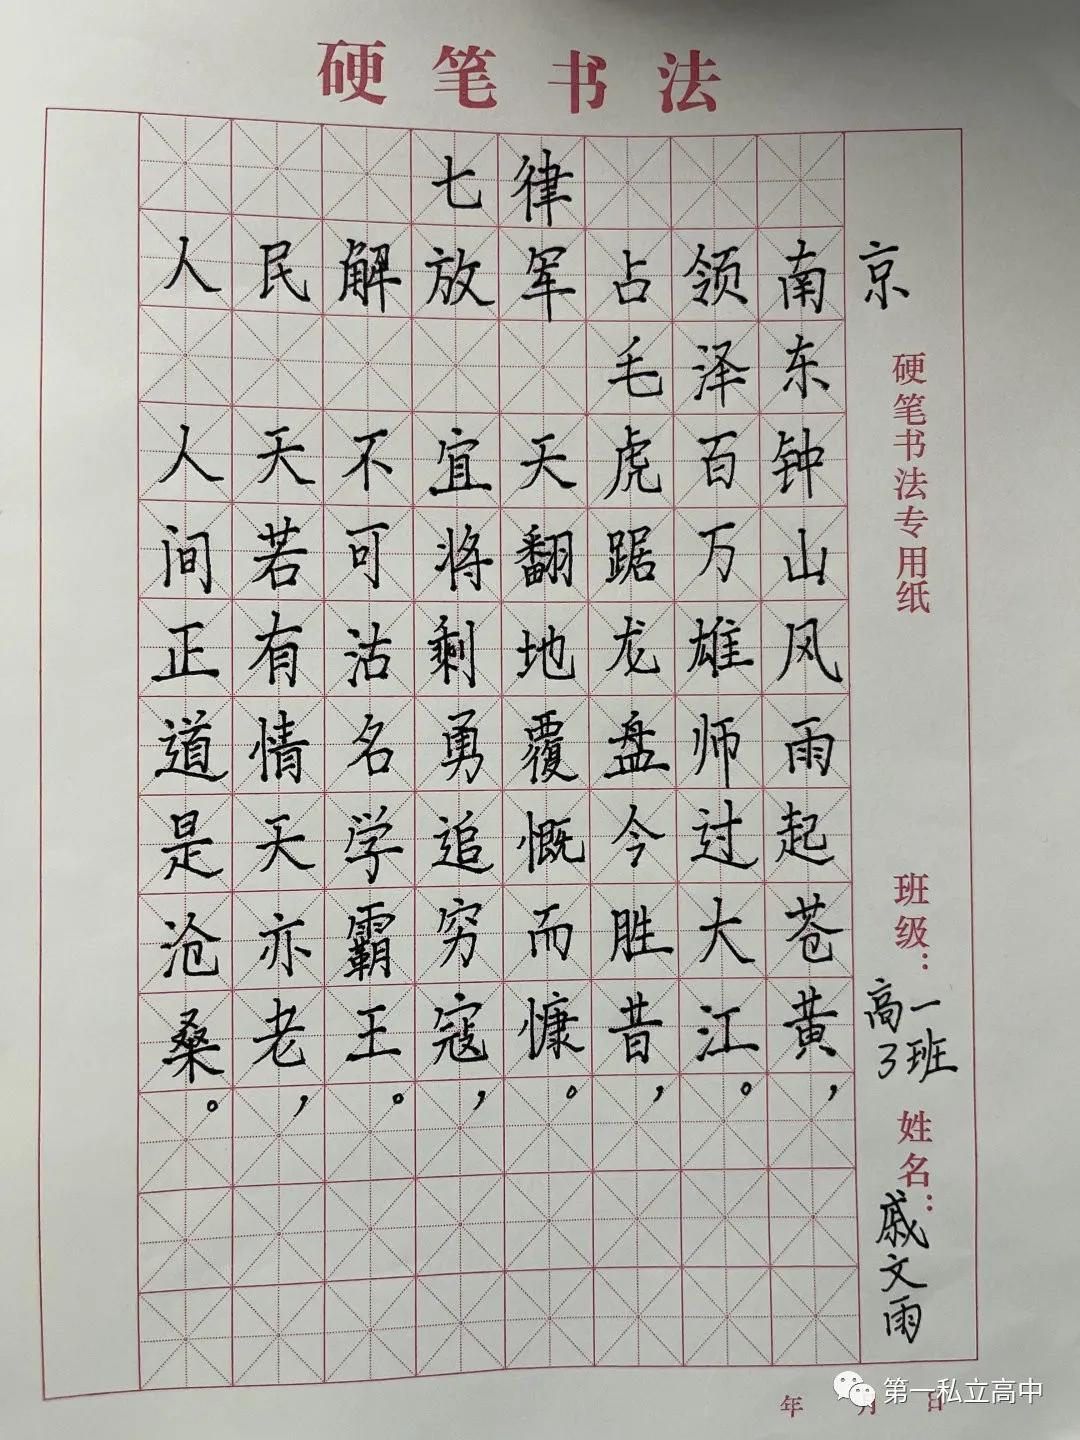 硬笔书法
七律
人民解放军占领南京
毛泽东
钟山风雨起苍黄，
百万雄师过大江。
虎踞龙盘今胜昔，
天翻地覆慨而慷。
宜将剩勇追穷寇，
不可沽名学霸王。
天若有情天亦老，
人间正道是沧桑。
硬笔书法专用纸
班级：
高一
3班
姓名：
戚文雨
年 月 日
第一私立高中